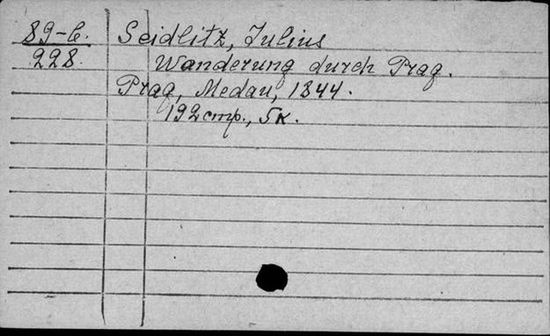 89-6.
228.
Seidlitz, Julius
Wanderung durch Prag.
Prag, Medau, 1844.
192 стр., 5к.